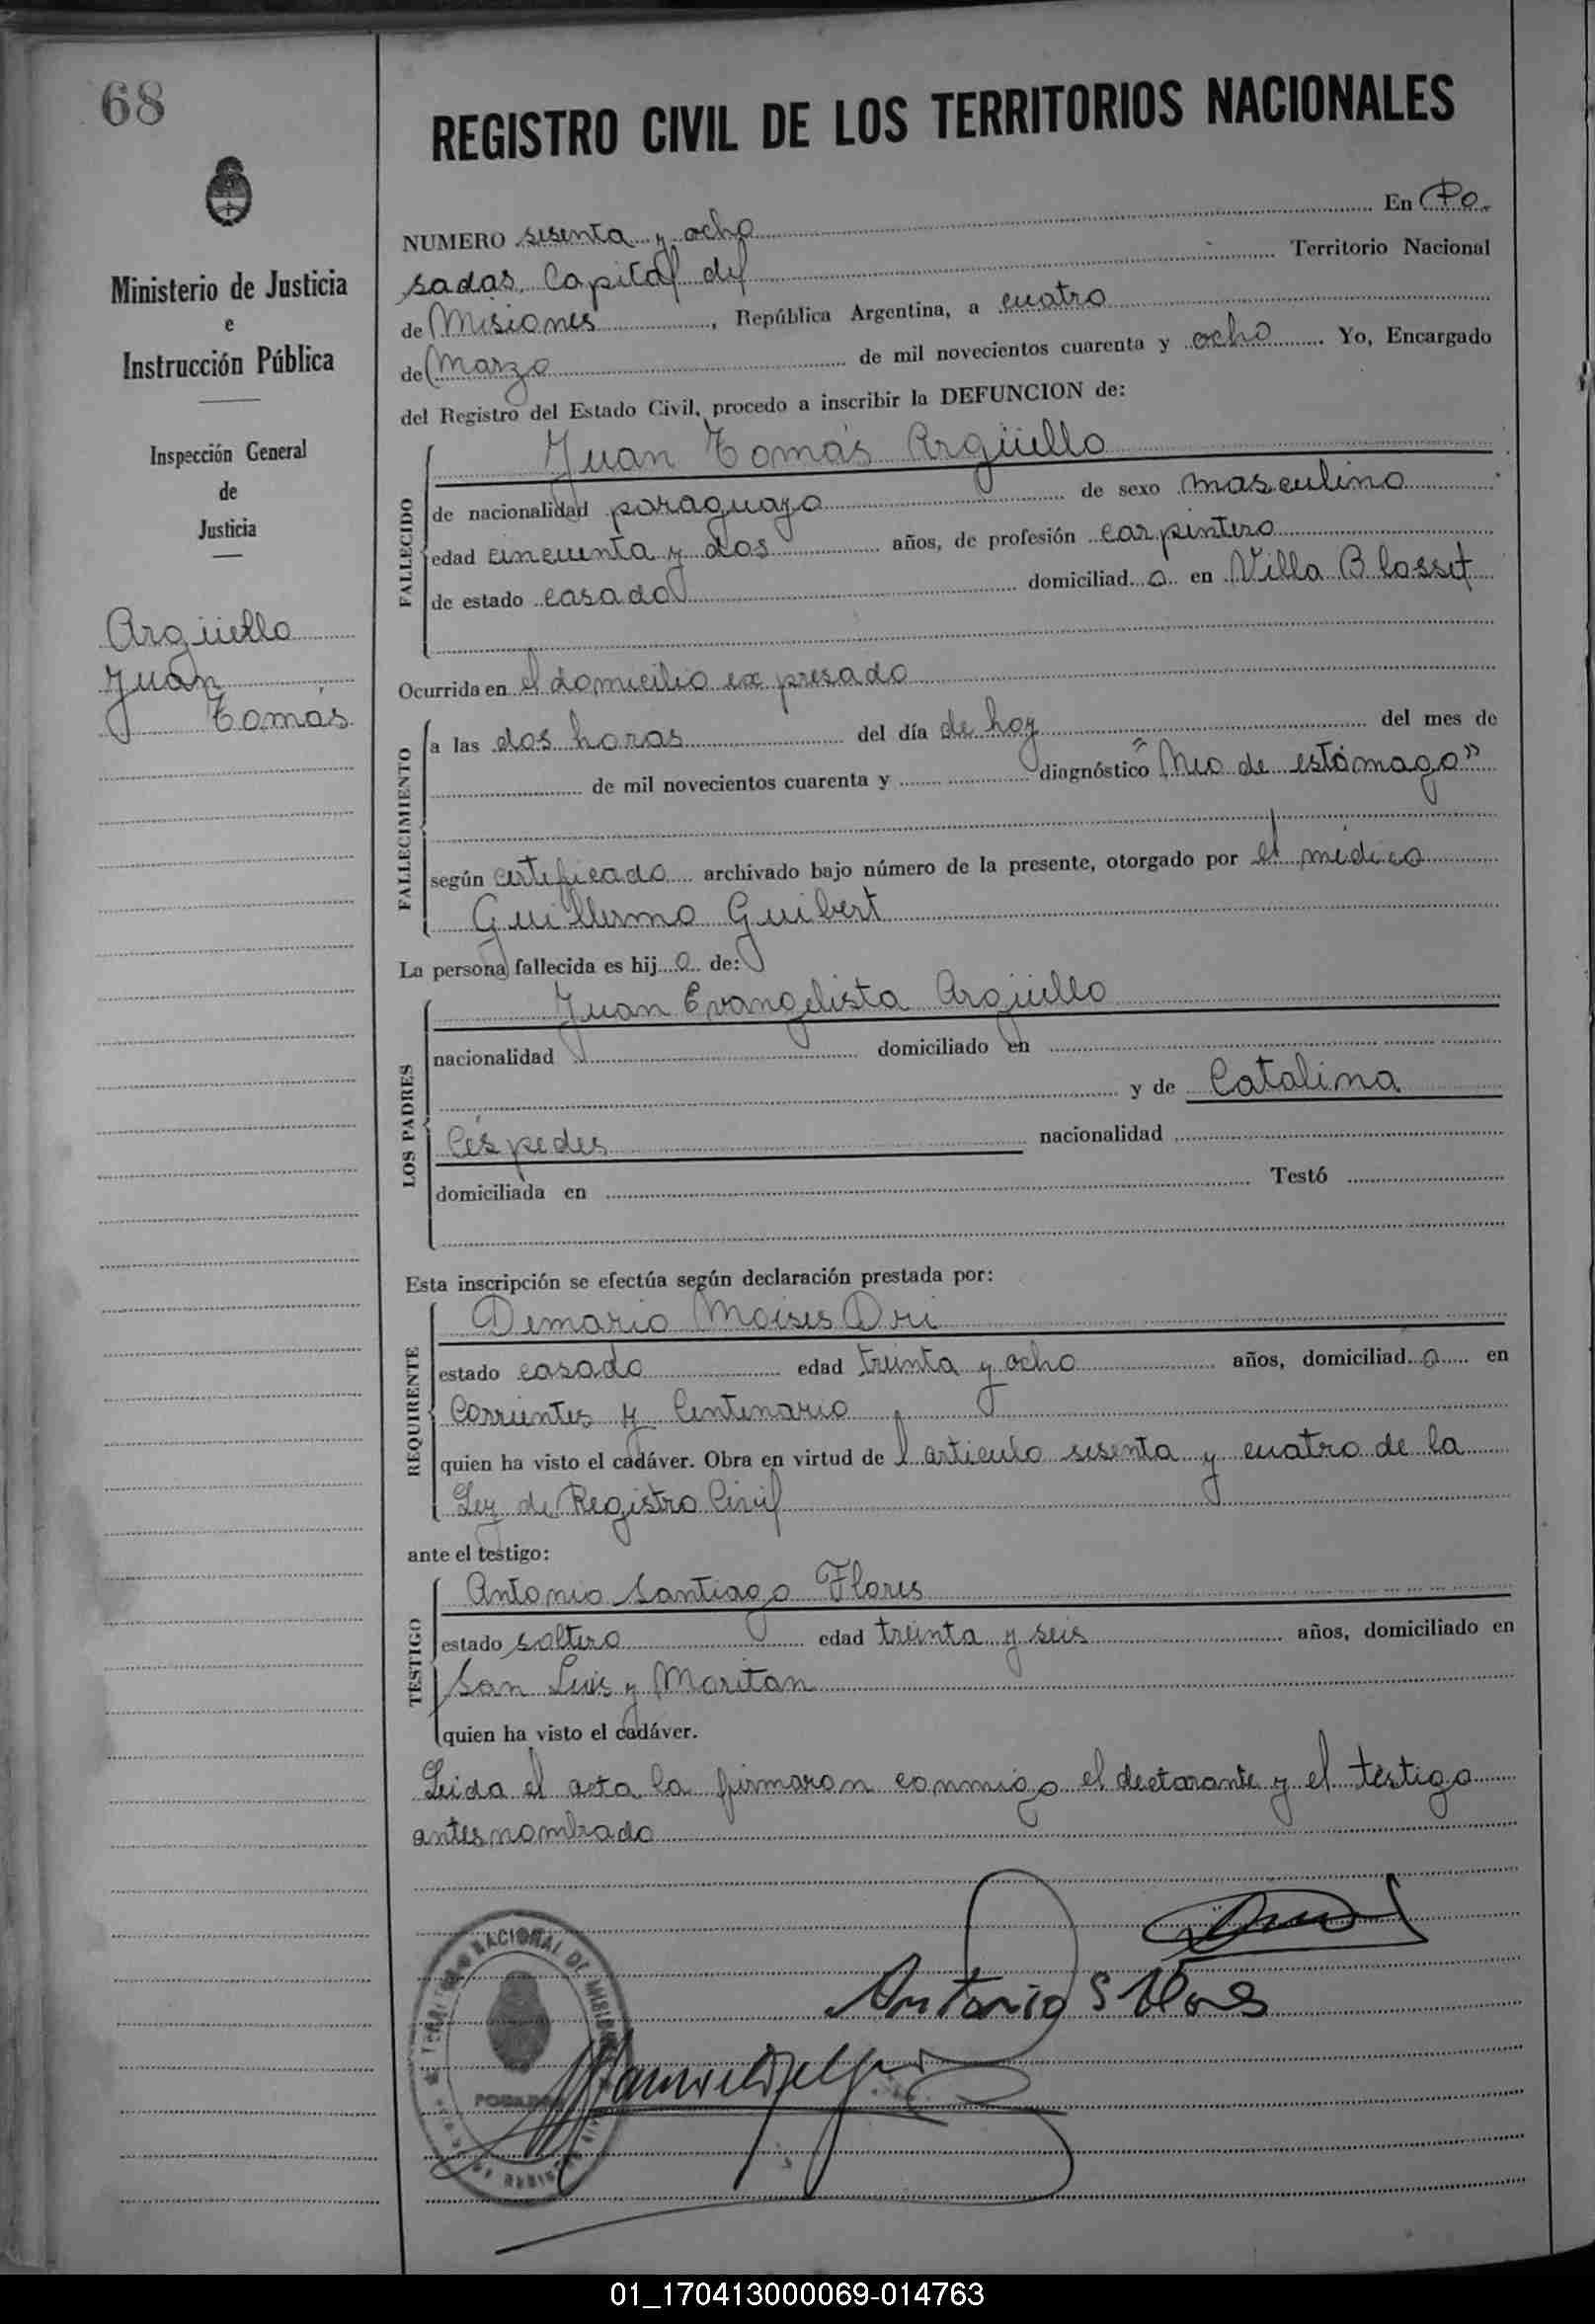 68
Ministerio de Justicia
e
Instrucción Pública
Inspección General
de
Justicia
Argüello
Juan
Tomás
REGISTRO CIVIL DE LOS TERRITORIOS NACIONALES
NUMERO sesenta y ocho En Po-
sadas, Capital del Territorio Nacional
de Misiones, República Argentina, a cuatro
de Marzo de mil novecientos cuarenta y ocho. Yo, Encargado
del Registro del Estado Civil, procedo a inscribir la DEFUNCION de:
FALLECIDO
Juan Tomás Argüello
de nacionalidad paraguayo de sexo masculino
edad cincuenta y dos años, de profesión carpintero
de estado casado domiciliad o en Villa Blosset
Ocurrida en el domicilio expresado
FALLECIMIENTO
a las dos horas del día de hoy del mes de
de mil novecientos cuarenta y diagnóstico "Neo de estómago"
según certificado archivado bajo número de la presente, otorgado por el médico
Guillermo Guibert
La persona fallecida es hij o de:
LOS PADRES
Juan Evangelista Argüello
nacionalidad domiciliado en
y de Catalina
Céspedes nacionalidad
domiciliada en Testó
Esta inscripción se efectúa según declaración prestada por:
REQUIRENTE
Demario Moises Dri
estado casado edad treinta y ocho años, domiciliad o en
Corrientes y Centenario
quien ha visto el cadáver. Obra en virtud de l articulo sesenta y cuatro de la
Ley de Registro Civil
ante el testigo:
TESTIGO
Antonio Santiago Flores
estado soltero edad treinta y seis años, domiciliado en
San Luis y Moritan
quien ha visto el cadáver.
Leida el acta la firmaron conmigo el declarante y el testigo
antes nombrado
Antonio S Flores
NACIONAL DE MISIONES
POSADAS
01_170413000069-014763